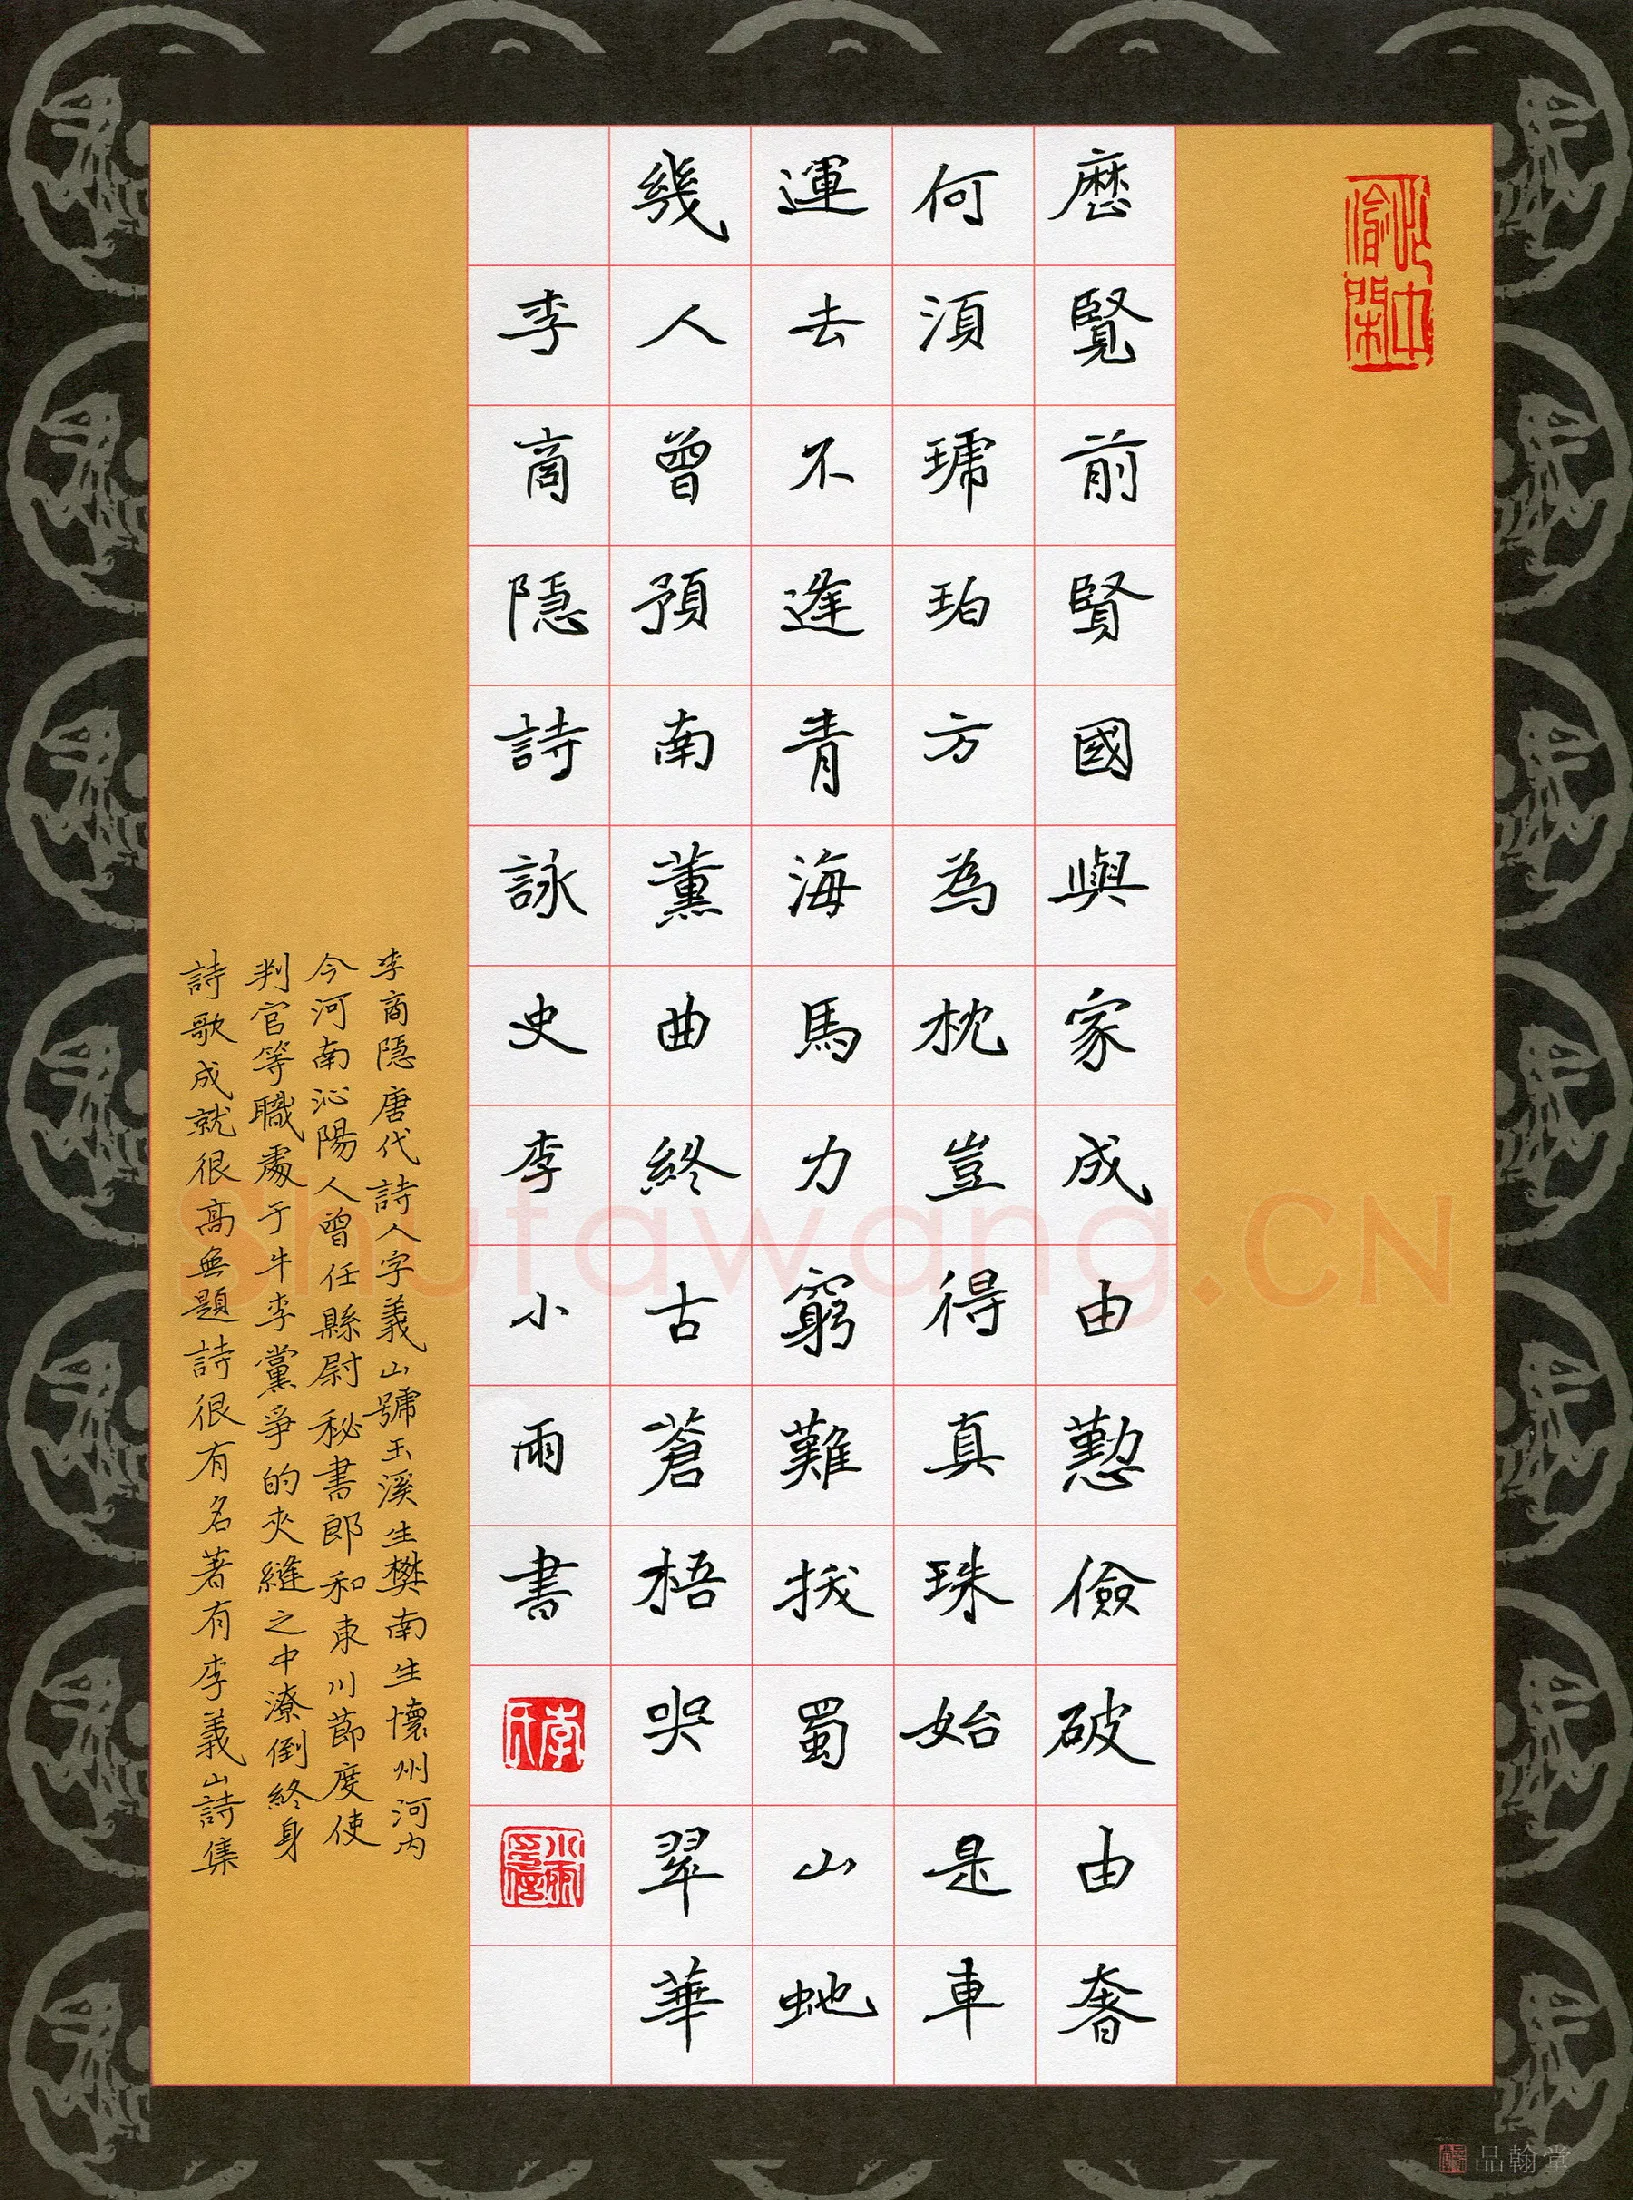 忙中偷閑
歷覽前賢國與家成由懃儉破由奢
何須琥珀方為枕豈得真珠始是車
運去不逢青海馬力窮難拔蜀山虵
幾人曾預南薰曲終古蒼梧哭翠華
李商隱詩詠史李小雨書
李氏
小雨印信
李商隱唐代詩人字義山號玉溪生樊南生懷州河內
今河南沁陽人曾任縣尉秘書郎和東川節度使
判官等職處于牛李黨爭的夾縫之中潦倒終身
詩歌成就很高無題詩很有名著有李義山詩集
Shufawang.CN
品翰堂